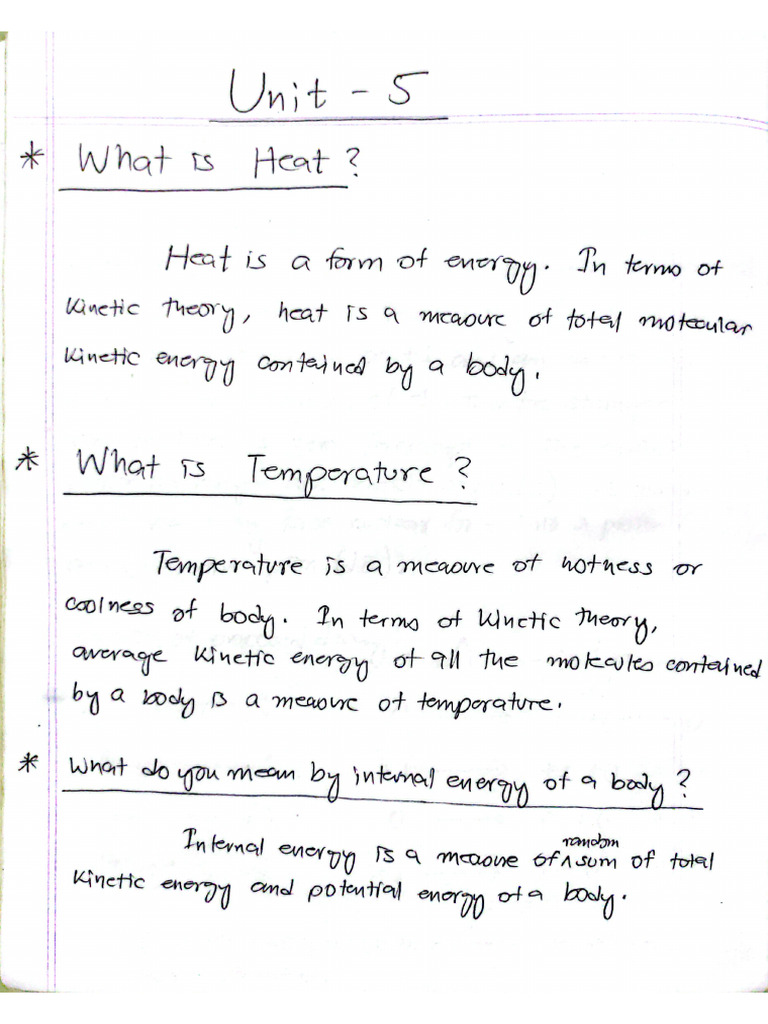 Unit - 5
* What is Heat?
Heat is a form of energy. In terms of
Kinetic theory, heat is a measure of total molecular
Kinetic energy contained by a body.
* What is Temperature?
Temperature is a measure of hotness or
coolness of body. In terms of Kinetic theory,
average Kinetic energy of all the molecules contained
by a body is a measure of temperature.
* What do you mean by internal energy of a body?
Internal energy is a measure of ^ random sum of total
Kinetic energy and potential energy of a body.